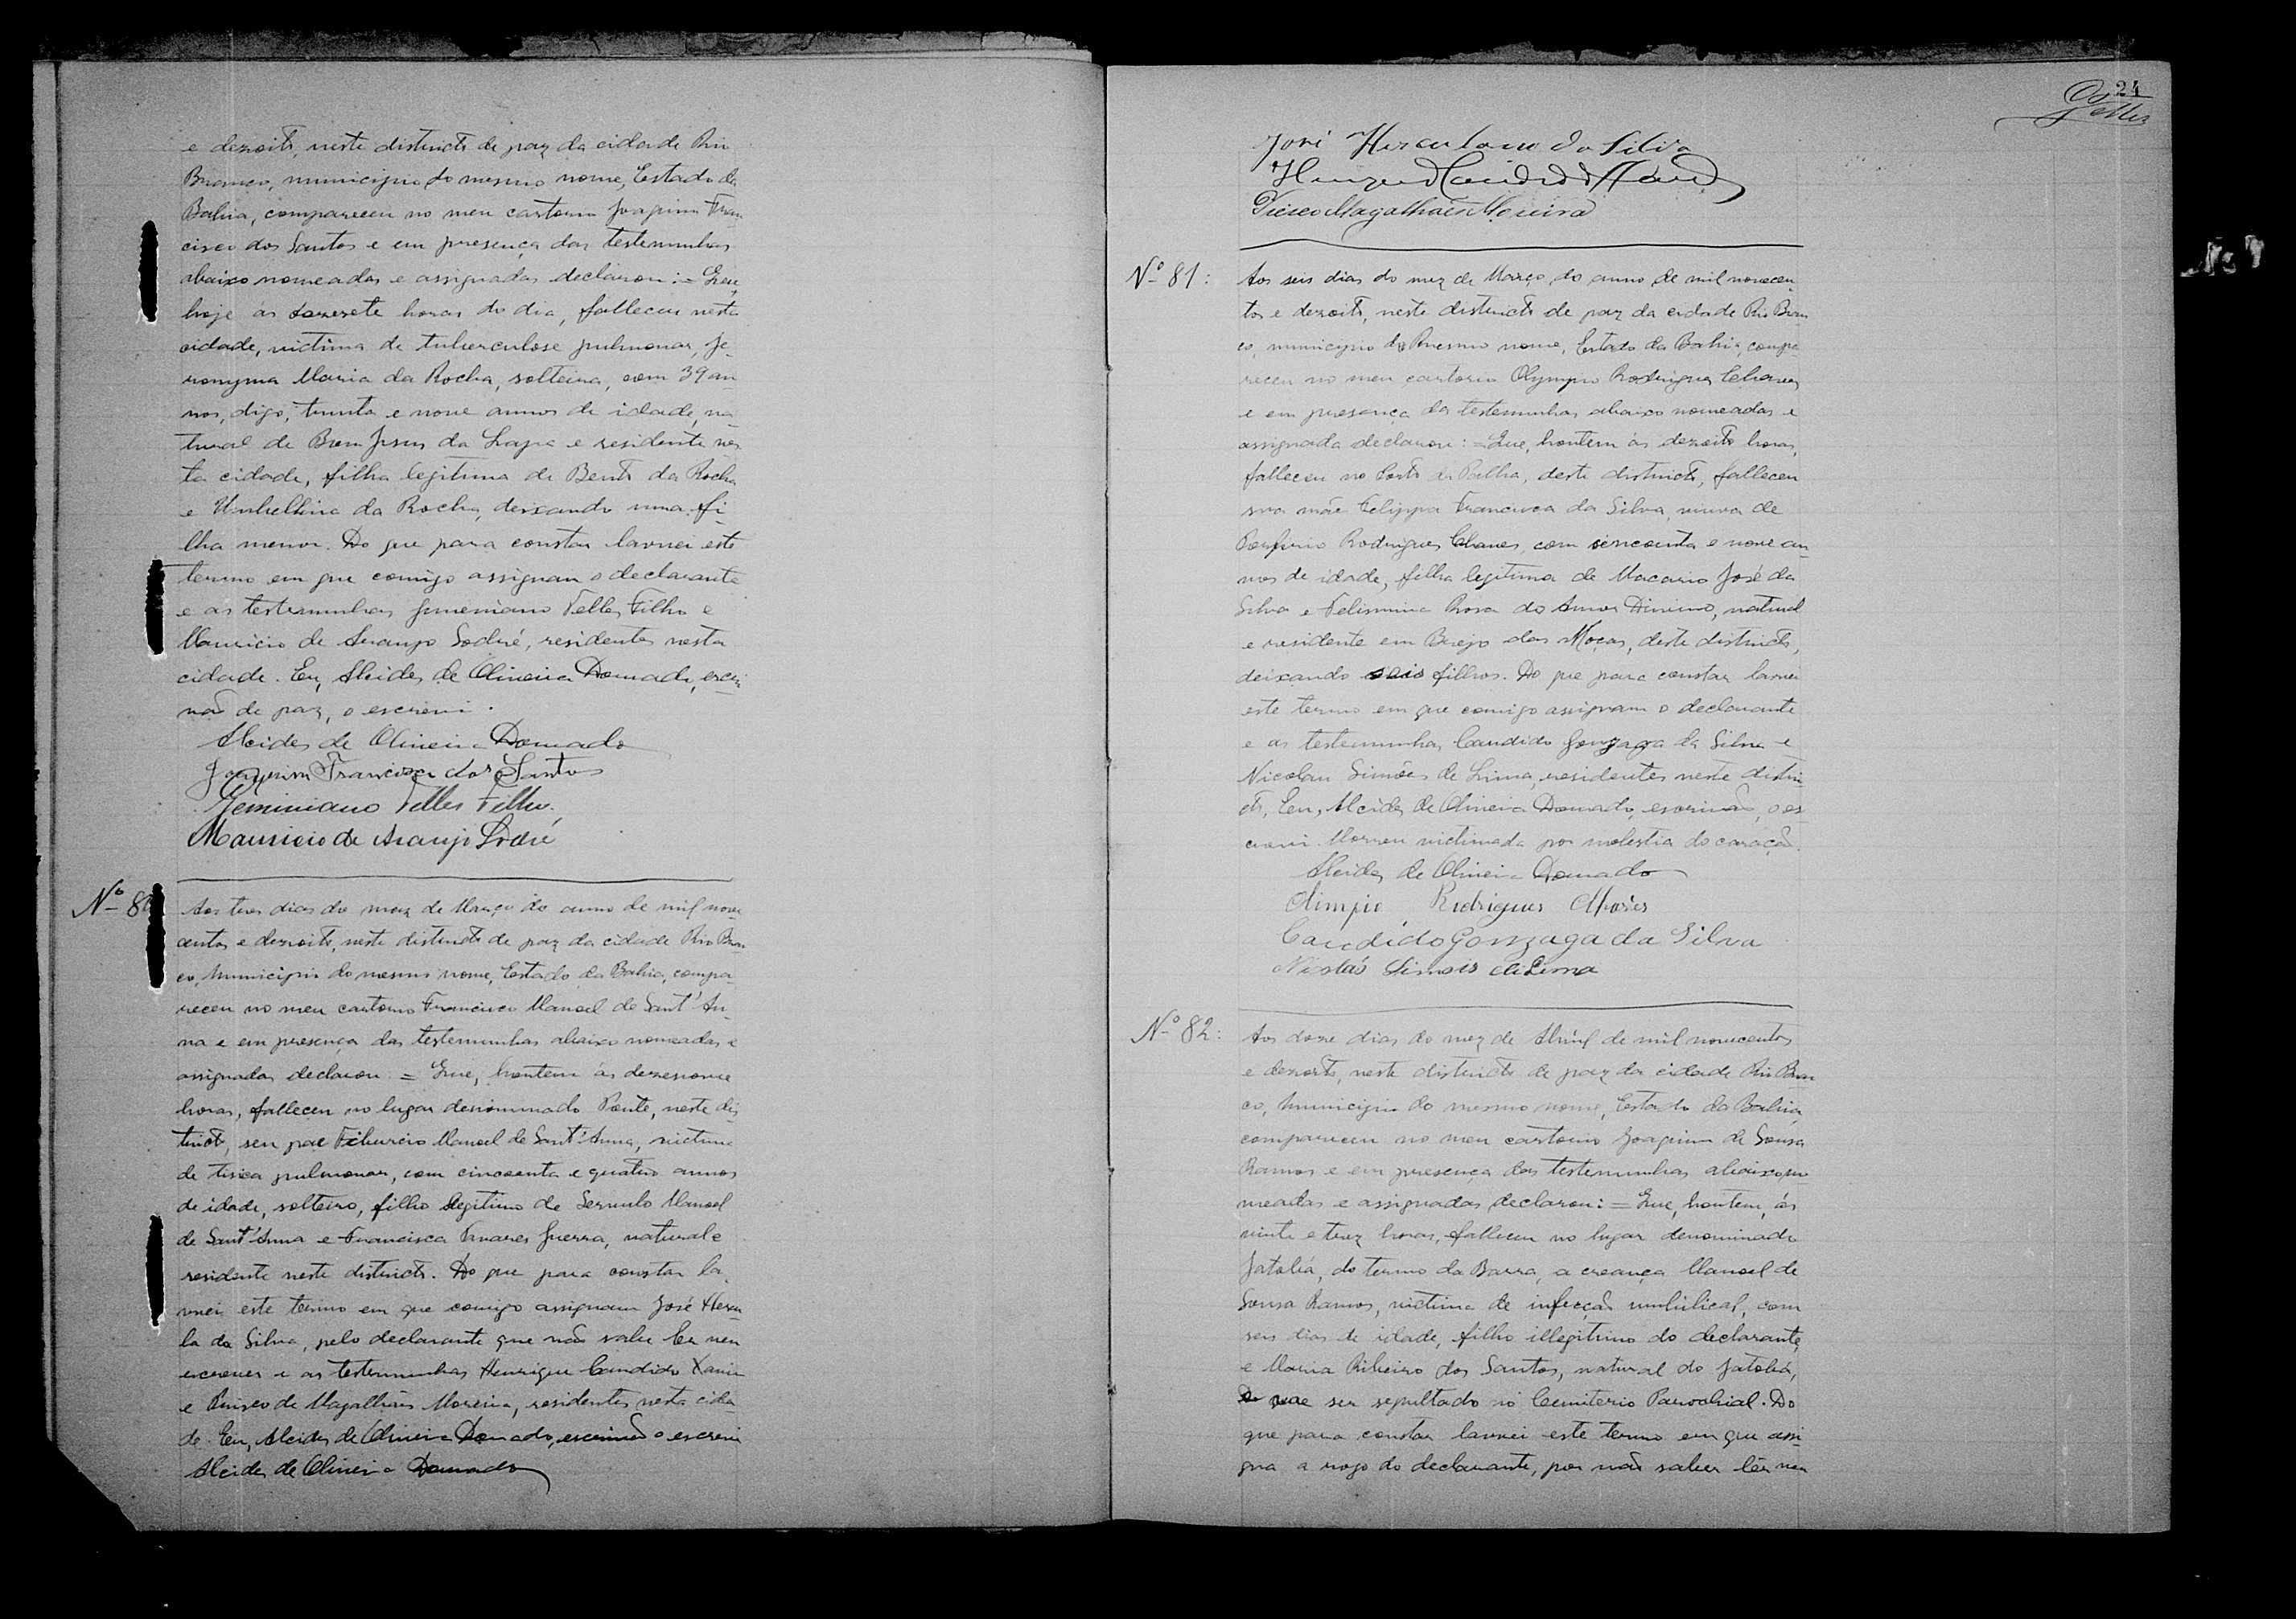 e dezoito, neste districto de paz da cidade Rio
Branco, municipio do mesmo nome, Estado da
Bahia, compareceu no meu cartorio Joaquim Fran
cisco dos Santos e em presença das testemunhas
abaixo nomeadas e assignadas declarou: = Que,
hoje ás horas do dia, falleceu nesta
cidade, victima de tuberculose pulmonar, Je-
ronyma Maria da Rocha, solteira, com 39 an
nos, digo, trinta e nove annos de idade, na
tural de Bom Jesus da Lapa e residente nes
ta cidade, filha legitima de Bento da Rocha
e Umbellina da Rocha, deixando uma fi-
lha menor. Do que para constar lavrei este
termo em que comigo assignam o declarante
e as testemunhas Geminiano Telles Filho e
Mauricio de Araujo Sodré, residentes nesta
cidade. Eu, Alcides de Oliveira Dourado, escri
vão de paz, o escrevi.
Alcides de Oliveira Dourado
Joaquim Francisco dos Santos
Geminiano Telles Filho.
Mauricio de Araujo Sodré
Nº 80
Aos tres dias do mez de Março do anno de mil nove
centos e dezoito, neste districto de paz da cidade Rio Bran
co, Municipio do mesmo nome, Estado da Bahia, compa-
receu no meu cartorio Francisco Manoel de Sant'An-
na e em presença das testemunhas abaixo nomeadas e
assignadas declarou = Que, hontem ás dezenove
horas, falleceu no lugar denominado Ponte, neste dis
tricto, seu pae Tiburcio Manoel de Sant'Anna, victima
de tisica pulmonar, com cincoenta e quatro annos
de idade, solteiro, filho legitimo de Servulo Manoel
de Sant'Anna e Francisca Tavares Guerra, natural e
residente neste districto. Do que para constar la-
vrei este termo em que comigo assignam José Hercu
la da Silva, pelo declarante que não sabe ler nem
escrever e as testemunhas Henrique Candido Xavier
e Prisco de Magalhães Moreira, residentes nesta cida
de. Eu, Alcides de Oliveira Dourado, escrivão o escrevi
Alcides de Oliveira Dourado
24
Telles
José Herculano da Silva
Prisco Magalhães Moreira
Nº 81:
Aos seis dias do mez de Março do anno de mil novecen
tos e dezoito, neste districto de paz da cidade Rio Bran
co, municipio do mesmo nome, Estado da Bahia, compa
receu no meu cartorio Olympio Rodrigues Chaves
e em presença das testemunhas abaixo nomeadas e
assignada declarou: = Que, hontem ás dezoito horas,
falleceu no da Palha, deste districto, falleceu
sua mãe Felippa Francisca da Silva, viuva de
Porfirio Rodrigues Chaves, com sincoenta e nove an-
nos de idade, filha legitima de Macario José da
Silva e Felismina Rosa do Amor Divino, natural
e residente em Brejo das Moças, deste districto,
deixando seis filhos. Do que para constar lavrei
este termo em que comigo assignam o declarante
e as testemunhas Candido Gonzaga da Silva e
Nicolau Simões de Lima, residentes neste distri
cto. Eu, Alcides de Oliveira Dourado, escrivão, o es-
crevi. Morreu victimada por molestia do coração.
Alcides de Oliveira Dourado
Olimpio Rodrigues
Candido Gonzaga da Silva
Simois de Lima
Nº 82:
Aos doze dias do mez de Abril de mil novecentos
e dezoito, neste districto de paz da cidade Rio Bran
co, Municipio do mesmo nome, Estado da Bahia,
compareceu no meu cartorio Joaquim de Sousa
Ramos e em presença das testemunhas abaixo no
meadas e assignadas, declarou: = Que, hontem, ás
vinte e trez horas, falleceu no lugar denominado
Jatobá, do termo da Barra, a creança Manoel de
Sousa Ramos, victima de infecção umbilical, com
seis dias de idade, filho illegitimo do declarante
e Maria Ribeiro dos Santos, natural do Jatobá,
e vae ser sepultado no Cemiterio Parochial. Do
que para constar lavrei este termo em que assi
gna a rogo do declarante, por não saber lêr nem